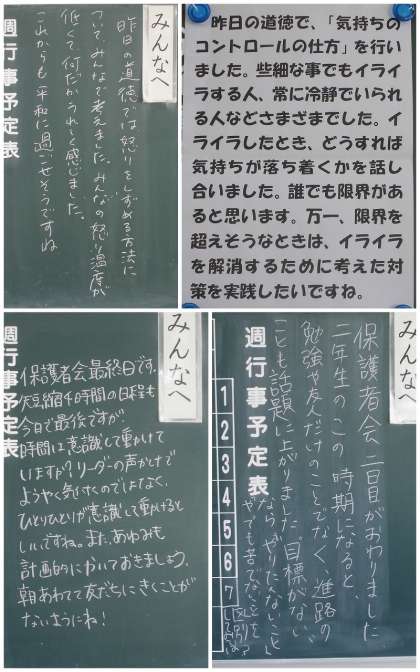 みんなへ
昨日の道徳では怒りをしずめる方法に
ついて、みんなで考えました。みんなの怒り温度が
低くて何だかうれしく感じました。
これからも平和に過ごせそうですね
週行事予定表
昨日の道徳で、「気持ちの
コントロールの仕方」を行い
ました。些細な事でもイライ
ラする人、常に冷静でいられ
る人などさまざまでした。イ
ライラしたとき、どうすれば
気持ちが落ち着くかを話し
合いました。誰でも限界があ
ると思います。万一、限界を
超えそうなときは、イライラ
を解消するために考えた対
策を実践したいですね。
みんなへ
週行事予定表
保護者会最終日です。
短縮40時間の日程も
今日で最後ですが、
時間は意識して動かけて
いますか？リーダーの声かけで
ようやく気付くのではなく、
ひとりひとりが意識して動けると
いいですね。また、あゆみも
計画的にかいておきましょう。
朝あわてて友だちにきくことが
ないようにね！
みんなへ
保護者会二日目がおわりました
二年生のこの時期になると、
勉強や友人だけのことでなく、進路の
ことも話題に上がりました。「目標がない、
週行事予定表
1
2
3
4
5
6
7